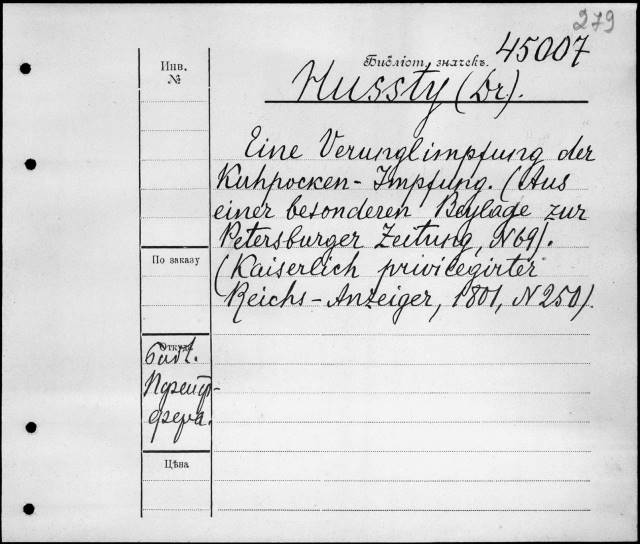 279
Инв.
№
Библіот. значекъ. 45007
Hussty (Dr).
Eine Verunglimpfung der
Kuhpocken-Impfung. (Aus
einer besonderen Beylage zur
Petersburger Zeitung, N 69).
По заказу
(Kaiserlich privilegirter
Reichs-Anzeiger, 1801, N 250).
Откуда
библ.
Пфейф-
фера.
Цѣна